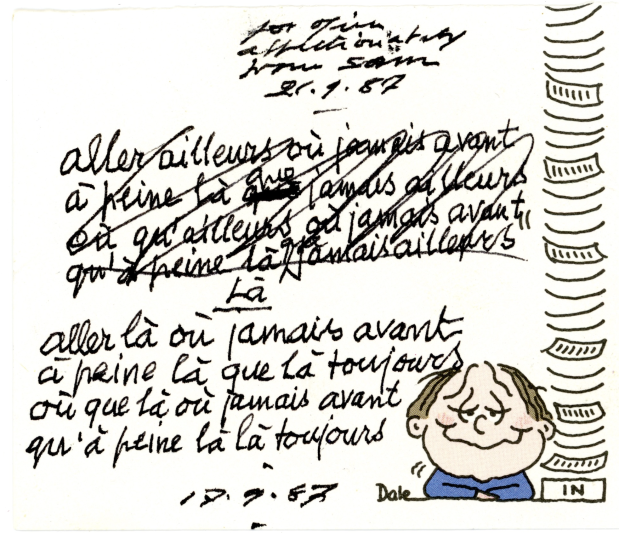 for Jim
affectionately
from Sam
21.9.87
aller ailleurs où jamais avant
à peine là que jamais ailleurs
où qu'ailleurs où jamais avant
qu'à peine là que jamais ailleurs
Là
aller là où jamais avant
à peine là que là toujours
où que là où jamais avant
qu'à peine là là toujours
Dale
IN